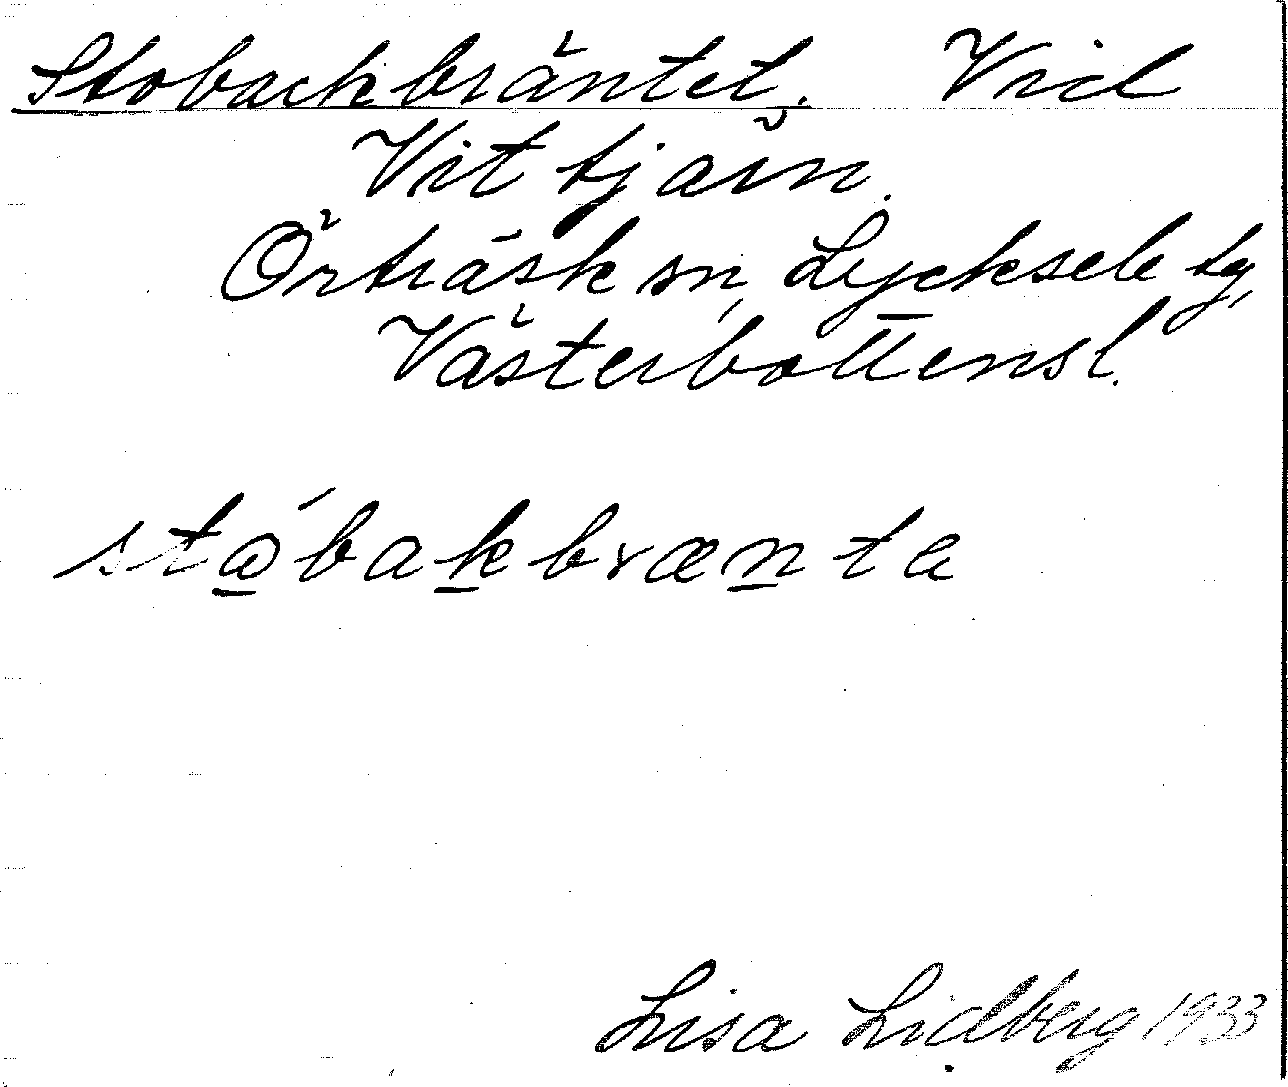 Stobackbräntet. Vid
Vittjärn.
Örträsk sn, Lycksele tg,
Västerbottensl.
staˊbakbrænta
Lisa Lidberg 1933